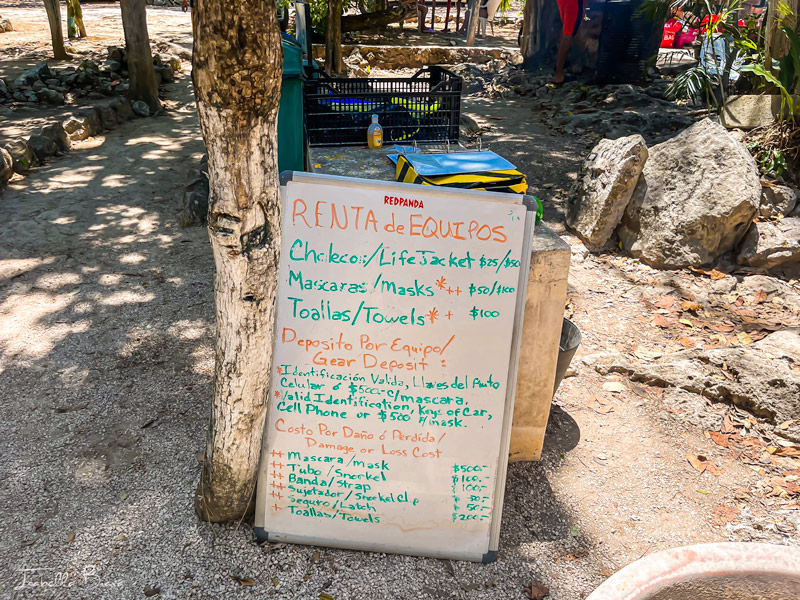 REDPANDA
RENTA de EQUIPOS
Chalecos/Life Jacket $25/$50
Mascaras/Masks*++ $50/$100
Toallas/Towels*+ $100
Deposito Por Equipo/
Gear Deposit:
*Identificación Valida, Llaves del Auto
Celular ó $500- c/mascara.
*Valid Identification, Keys of Car,
Cell Phone or $500 /mask.
Costo Por Daño ó Perdida/
Damage or Loss Cost
++ Mascara/mask $500-
++ Tubo/Snorkel $100-
++ Banda/Strap $100-
++ Sujetador/Snorkel $30-
++ Seguro/Latch $50-
+ Toallas/Towels $200-